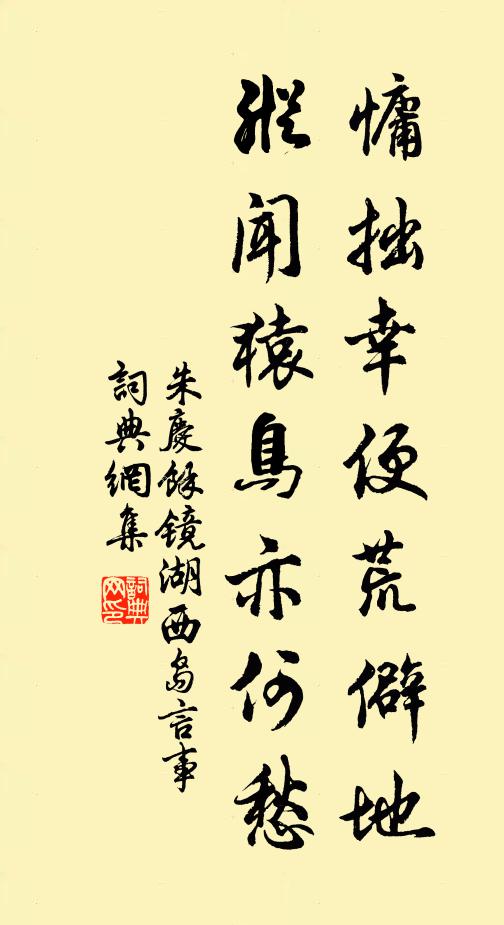 慵拙幸便荒僻地
縱聞猿鳥亦何愁
朱慶餘鏡湖西島言事
詞典網集
詞典網印